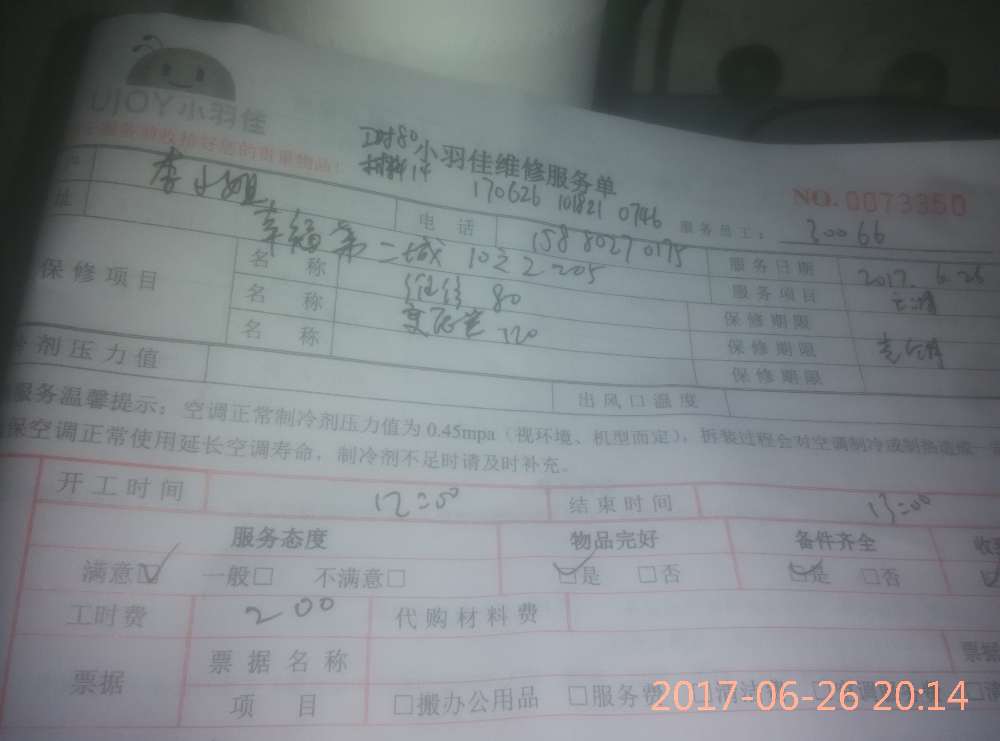 UJOY小羽佳
小羽佳维修服务单
工时80
材料14
170626 101821 0746
NO.0073350
李小姐
电话 15880270175
服务员工: 30066
址 幸福第二城10之2-205
服务日期 2017.6.26
保修项目
名称 维修 80
服务项目
名称 120
保修期限
名称
保修期限
保修期限
剂压力值
出风口温度
服务温馨提示:空调正常制冷剂压力值为0.45mpa(视环境、机型而定),拆装过程会对空调制冷或制热造成一
保空调正常使用延长空调寿命,制冷剂不足时请及时补充。
开工时间 12:00 结束时间 13:00
服务态度 物品完好 备件齐全
满意☑ 一般□ 不满意□ ☑是 □否 ☑是 □否
工时费 200 代购材料费
票据 票据名称 票据
项目 □搬办公用品 □服务费
2017-06-26 20:14